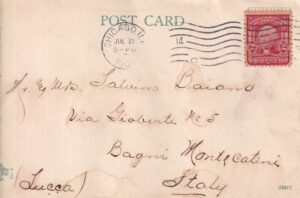 POST CARD
CHICAGO, ILL
JUL 21
14
Mr. & Mrs. Salvino Baiano
Via Gioberti No 5
Bagni Montecatini
(Lucca)
Italy